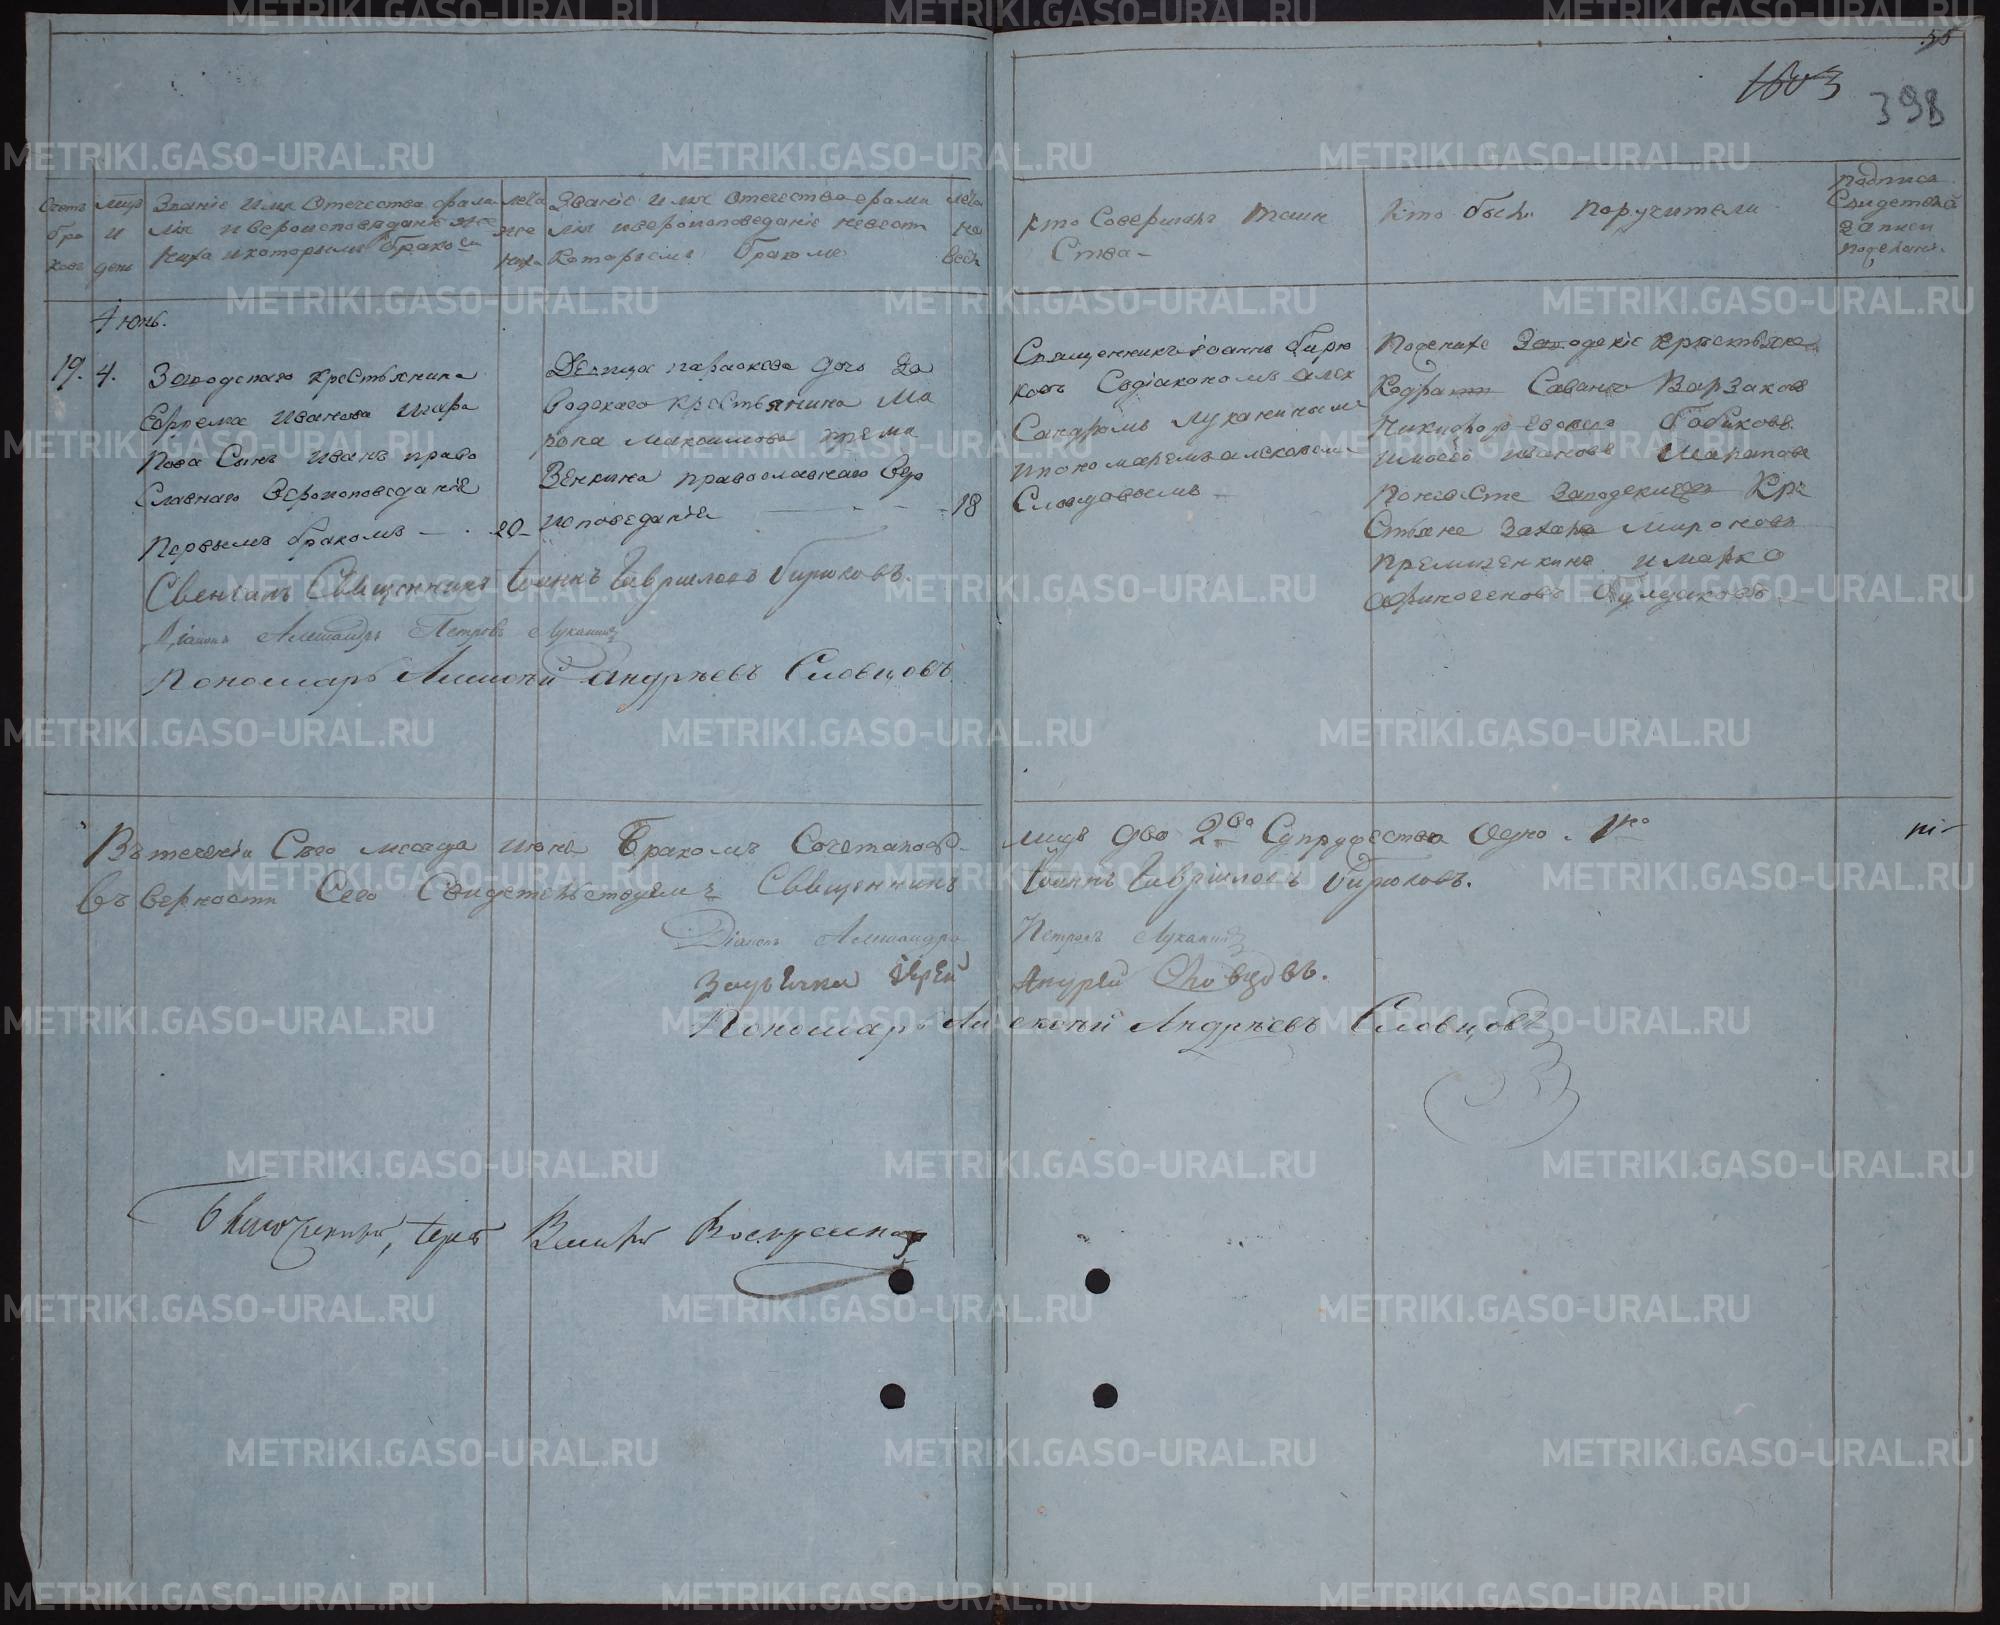 55
1603
398
Счетъ бра ковъ
мцъ и день
Званіе имя Отечество фами лія и вероисповеданіе же ниха и которымъ бракомъ
лета же ниха
Званіе имя отечество фами лія и вероисповеданіе невест которымъ бракомъ
лета не вест
кто Совершалъ Таин
Ства
Кто былъ поручители
подпись
Свидетелей
записи
4 юнь.
19. 4.
Заводскаго крестьянина
Ефрема Иванова Шара
пова Сынъ Иванъ право
Славнаго Вероисповеданія
Первымъ бракомъ 20
Девица параскева дочь За
водскаго крестьянина Ми
рона Максимова Преми
Зенкина православнаго Веро
исповеданія 18
Священникъ иоаннъ бирю
ковъ Содіакономъ алек
Сандромъ луканинымъ
и пономаремъ алексеемъ
Словцовымъ
По женихе Заводскіе крестьяне
Саванъ Варзаковъ
Никифоръ
иванъ Шараповъ
По невесте Заводскіе Кре
Стьяне Захаръ Мироновъ
Премизенкинъ и марко
афиногеновъ булдаковъ
Свенчалъ Священникъ Іоаннъ Гавриловъ Бирюковъ.
Діаконъ Александръ Петровъ Луканинъ
Пономарь Алексѣй Андрѣевъ Словцовъ
Въ течении Сего месяца июня Бракомъ Сочеталось лицъ два 2 Супружество Одно. 1
Въ верности Сего Свидетельствуемъ Священникъ Іоаннъ Гавриловъ Бирюковъ.
Діаконъ Александръ Петровъ Луканинъ
Андрей Словцовъ.
Пономарь Алексѣй Андрѣевъ Словцовъ
Благочинный, Іерей
METRIKI.GASO-URAL.RU